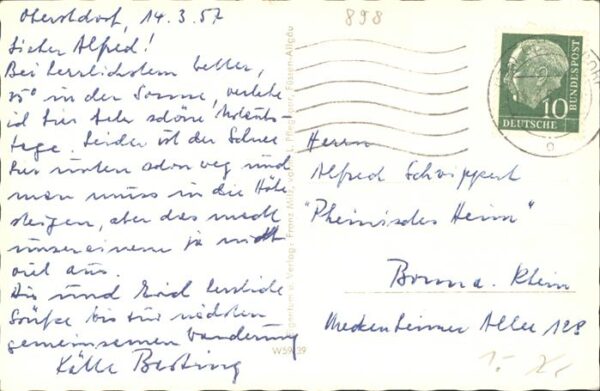 Oberstdorf, 14.3.57
Lieber Alfred!
Bei herrlichstem Wetter,
25° in der Sonne, verlebe
ich hier sehr schöne Urlaubs-
tage. Leider ist der Schnee
hier unten schon weg und
man muss in die Höhe
steigen, aber das macht
unsereinem ja nicht
viel aus.
Dir und herzliche
Grüße bis zur nächsten
gemeinsamen Wanderung
Käthe
898
Eigentum u. Verlag: Franz Milz, vorm. H. Pflegerl, Füssen-Allgäu
W 59/29
10
DEUTSCHE
BUNDESPOST
Herrn
Alfred Schwippert
"Rheinisches Heim"
Bonn a. Rhein
Meckenheimer Allee 128